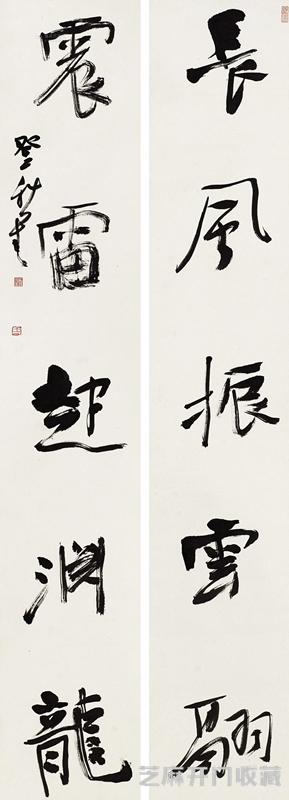 長風振雲翮
震雷起淵龍
芝麻开门收藏